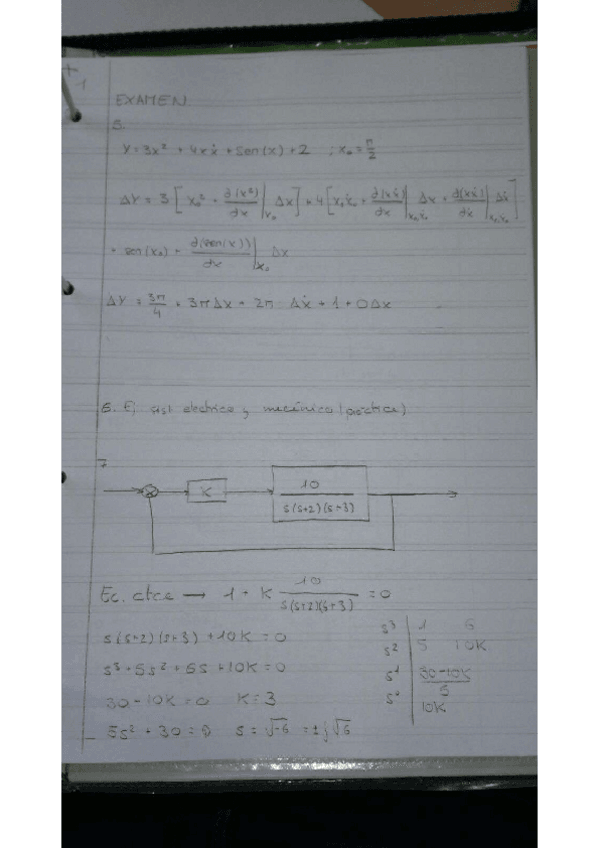 EXAMEN
5.
Y = 3x² + 4xẋ + sen(x) + 2 ; x₀ = π/2
ΔY = 3 [ x₀² + ∂(x²)/dx |x₀ Δx ] + 4 [ x₀ẋ₀ + ∂(xẋ)/dx |x₀ẋ₀ Δx + ∂(xẋ)/dẋ |x₀,ẋ₀ Δẋ ]
+ sen(x₀) + ∂(sen(x))/dx |x₀ Δx
ΔY = 3π/4 + 3πΔx + 2π Δẋ + 1 + 0Δx
6. Ej sist electrico y mecánico (práctica)
7
K
10
s(s+2)(s+3)
Ec. ctca → 1 + K 10/s(s+2)(s+3) = 0
s(s+2)(s+3) + 10K = 0
s³ + 5s² + 6s + 10K = 0
30 - 10K = 0 K = 3
5s² + 30 = 0 s = √-6 = ±j√6
s³ 1 6
s² 5 10K
s¹ 30-10K/5
s⁰ 10K